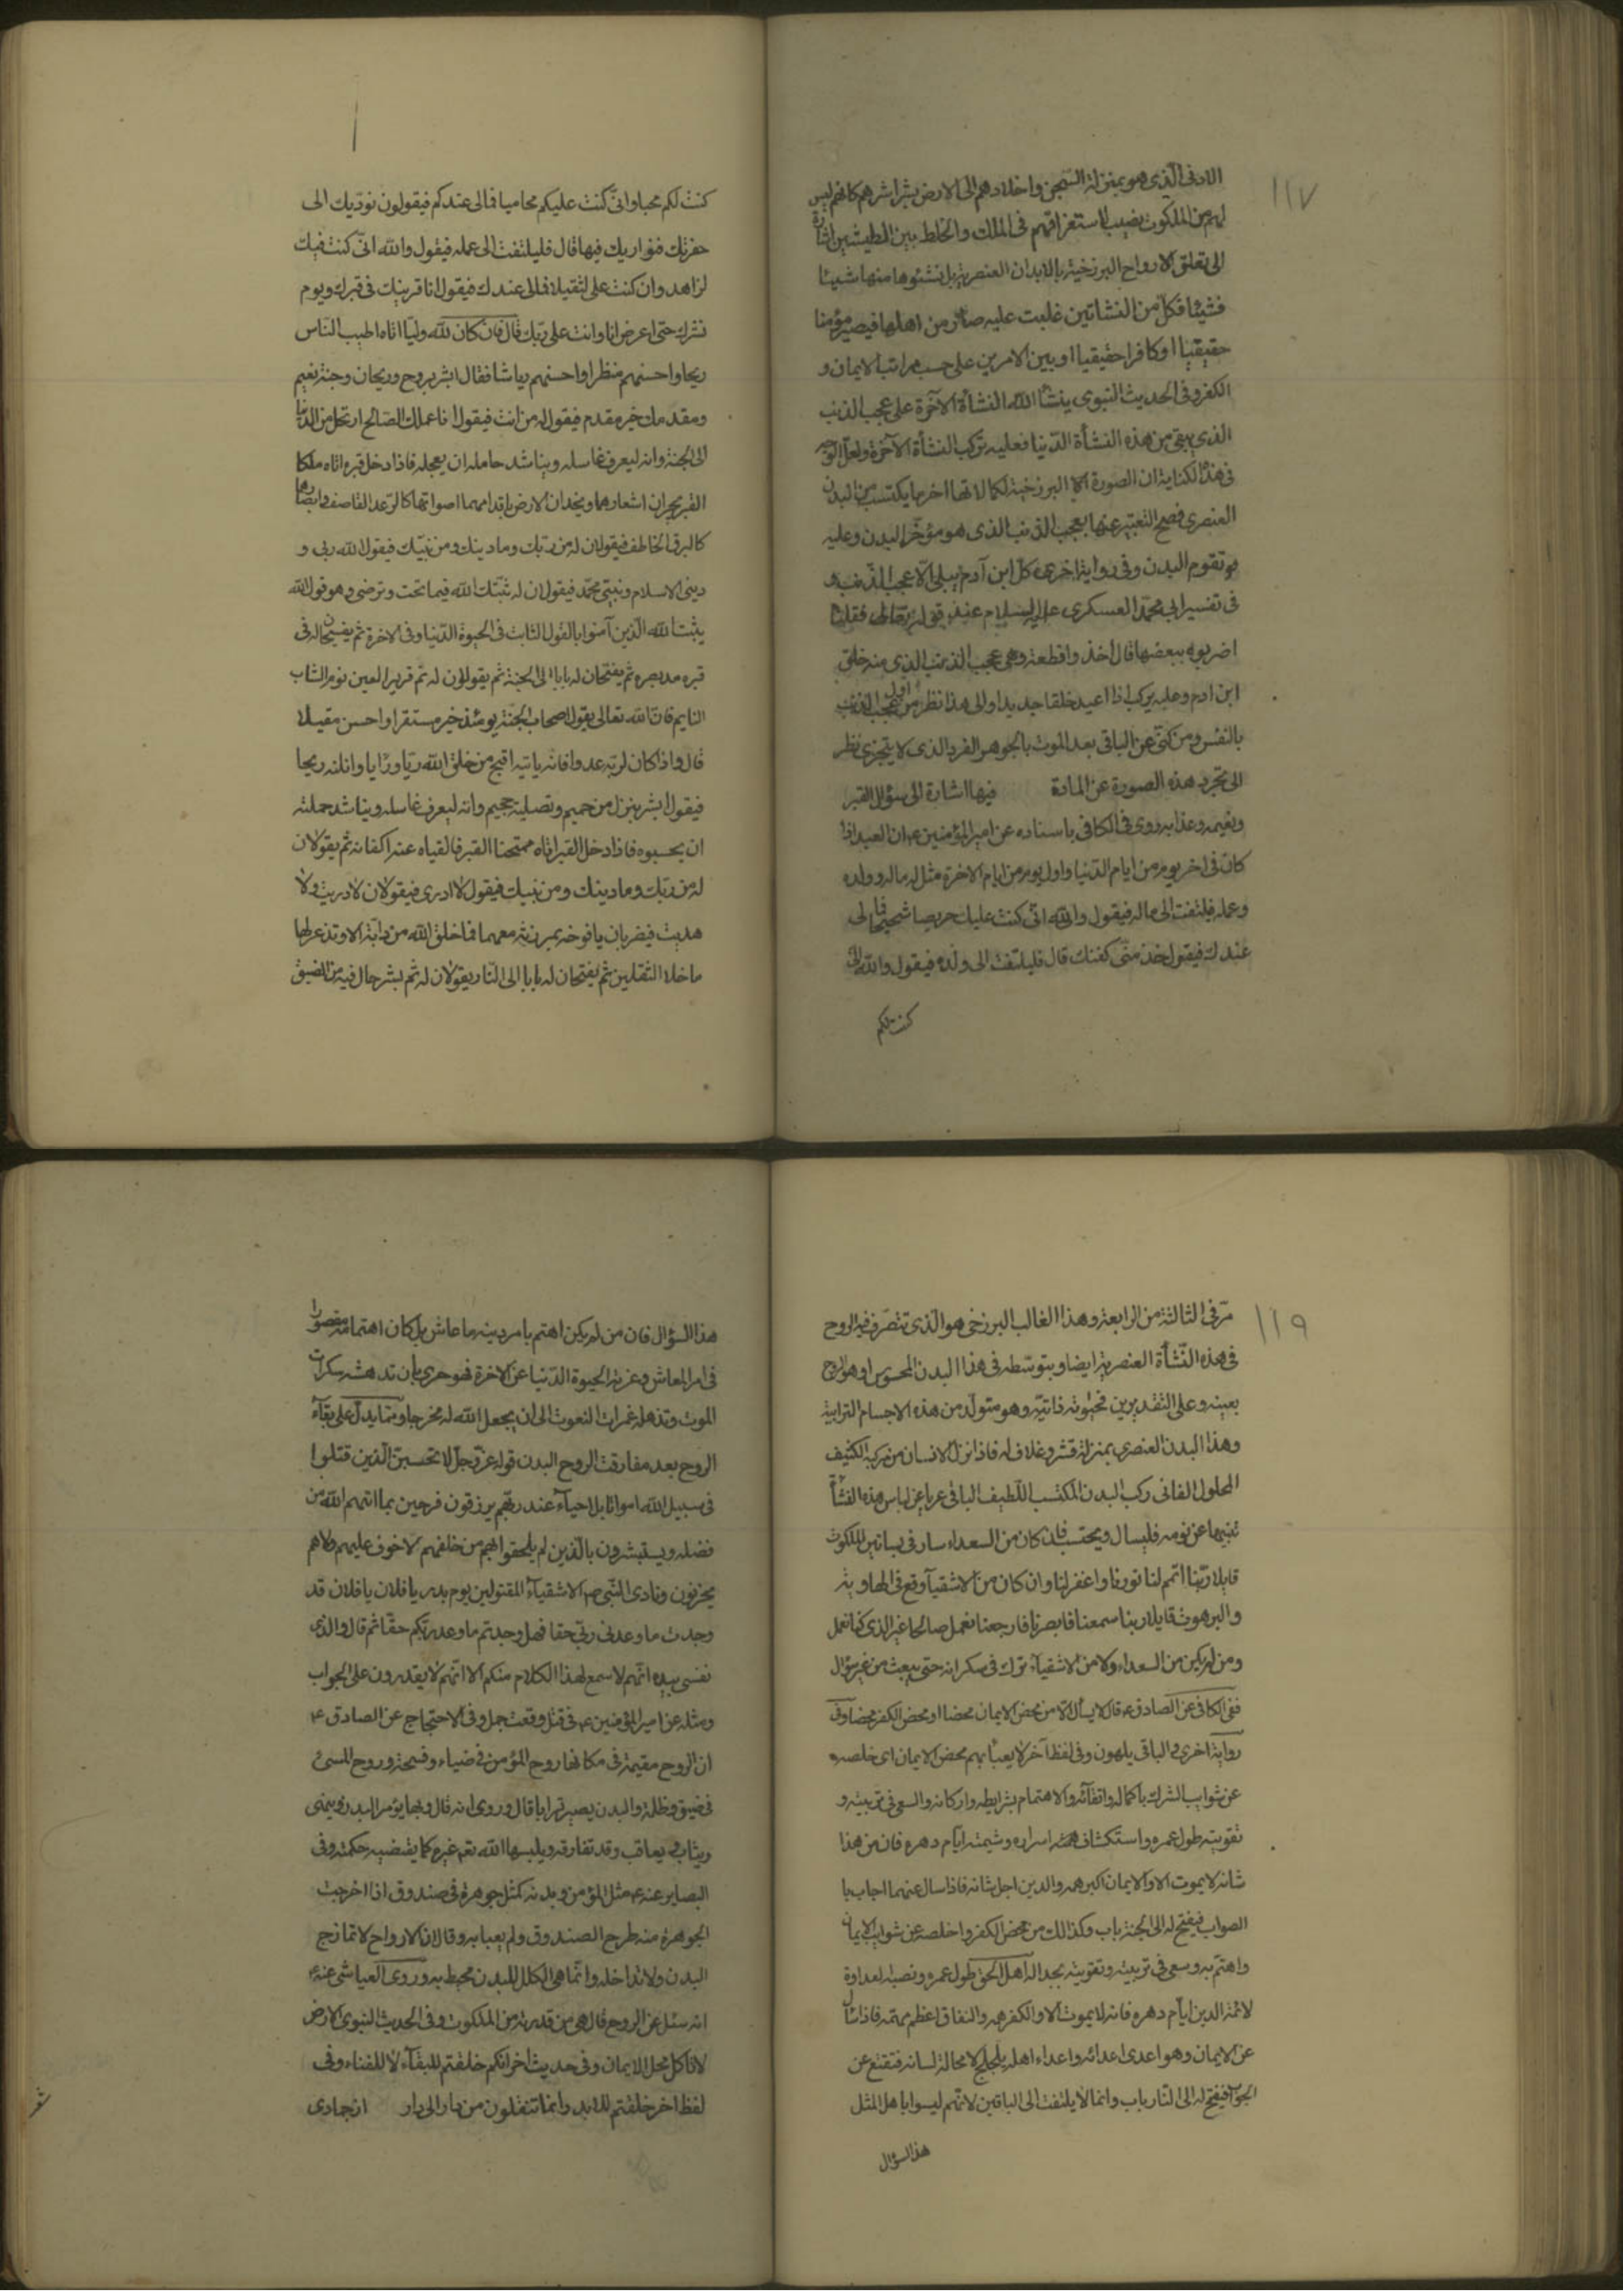 ١١٧
الادنى الذى هو بمنزلة السجن واخلادهم الى الارض بشراشرهم كانهم ليس
لهم من الملكوت نصيب لاستغراقهم فى الملك والخلط بين الطينتين اشارة
الى تعلق الارواح البرزخية بالابدان العنصرية بل نشئوها منها شيئا
فشيئا فكل من النشاتين غلبت عليه صار من اهلها فيصير مؤمنا
حقيقيا او كافرا حقيقيا او بين الامرين على حسب مراتب الايمان و
الكفر وفى الحديث النبوى ينشأ الله النشأة الآخرة على عجب الذنب
الذى يبقى من هذه النشأة الدنيا فعليه تركب النشأة الآخرة ولعل الوجه
فى هذا الكناية ان الصورة البرزخية لكمالاتها اخر ما يكتسب من البدن
العنصرى فصح التعبير عنها بعجب الذنب الذى هو مؤخر البدن وعليه
يقوم البدن وفى رواية اخرى كل ابن آدم يبلى الا عجب الذنب و
فى تفسير ابى محمد العسكرى عليه السلام عند قوله تعالى فقلنا
اضربوه ببعضها قال اخذوا قطعة وهى عجب الذنب الذى منه خلق
ابن ادم وعليه يركب اذا اعيد خلقا جديدا والى هذا نظر من اول عجب الذنب
بالنفس ومن كنى عن الباقى بعد الموت بالجوهر الفرد الذى لا يتجزى نظر
الى تجرد هذه الصورة عن المادة فيها اشارة الى سؤال القبر
ونعيمه وعذابه روى فى الكافى باسناده عن امير المؤمنين ع ان العبد اذا
كان فى اخر يوم من ايام الدنيا واول يوم من ايام الاخرة مثل له ماله وولده
وعمله فيلتفت الى ماله فيقول والله انى كنت عليك حريصا شحيحا فمالى
عندك فيقول خذ منى كفنك قال فيلتفت الى ولده فيقول والله انى
كنت لكم
كنت لكم محبا وانى كنت عليكم محاميا فمالى عندكم فيقولون نوديك الى
حفرتك فنواريك فيها قال فليلتفت الى عمله فيقول والله انى كنت فيك
لزاهد وان كنت على لثقيلا فمالى عندك فيقول انا قرينك فى قبرك ويوم
نشرك حتى اعرض انا وانت على ربك قال فان كان لله وليا اتاه اطيب الناس
ريحا واحسنهم منظرا واحسنهم رياشا فقال ابشر بروح وريحان وجنة نعيم
ومقدمك خير مقدم فيقول له من انت فيقول انا عملك الصالح ارتحل من الدنيا
الى الجنة وانه ليعرف غاسله ويناشد حامله ان يعجله فاذا دخل قبره اتاه ملكا
القبر يجران اشعارهما ويخدان الارض باقدامهما اصواتهما كالرعد القاصف وابصارهما
كالبرق الخاطف فيقولان له من ربك وما دينك ومن نبيك فيقول الله ربى و
دينى الاسلام ونبيى محمد فيقولان له ثبتك الله فيما تحب وترضى وهو قول الله
يثبت الله الذين آمنوا بالقول الثابت فى الحيوة الدنيا وفى الاخرة ثم يفسحان له فى
قبره مد بصره ثم يفتحان له بابا الى الجنة ثم يقولان له نم قرير العين نوم الشاب
الناعم فان الله تعالى يقول اصحاب الجنة يومئذ خير مستقرا واحسن مقيلا
قال واذا كان لربه عدوا فانه ياتيه اقبح من خلق الله زيا ورايا وانتنه ريحا
فيقول ابشر بنزل من حميم وتصلية جحيم وانه ليعرف غاسله ويناشد حملته
ان يحبسوه فاذا دخل القبر اتاه ممتحنا القبر فالقياه عنه اكفانه ثم يقولان
له من ربك وما دينك ومن نبيك فيقول لا ادرى فيقولان لا دريت ولا
هديت فيضربان يافوخه بمرزبة معهما ما خلق الله من دابة الا وتذعر لها
ما خلا الثقلين ثم يفتحان له بابا الى النار يقولان له نم بشر حال فيه من الضيق
١١٩
مر فى الثالثة من الرابعة وهذا الغالب البرزخى هو الذى تتصرف فيه الروح
فى هذه النشأة العنصرية ايضا وبتوسطه فى هذا البدن المحسوس او هو الروح
بعينه وعلى التقديرين فحيوته ذاتية وهو متولد من هذه الاجسام الترابية
وهذا البدن العنصرى بمنزلة قشر وغلاف له فاذا نزل الانسان من مركبه الكثيف
المحلول الفانى ركب البدن المكتسب اللطيف الباقى عريا عن لباس هذه النشأة
تنبها عن نومه فليسال ويحتسب فان كان من السعداء سار فى بساتين الملكوت
قايلا ربنا اتمم لنا نورنا واغفر لنا وان كان من الاشقياء وقع فى الهاوية
والبرهوت قايلا ربنا سمعنا فابصرنا فارجعنا نعمل صالحا غير الذى كنا نعمل
ومن لم يكن من السعداء ولا من الاشقياء ترك فى سكرانه حتى يبعث من غير سؤال
ففى الكافى عن الصادق ع قال لا يسال الا من محض الايمان محضا او محض الكفر محضا وفى
رواية اخرى والباقى يلهون وفى لفظ آخر لا يعبأ بهم محض الايمان اى خلصه
عن شوايب الشرك باكماله واتقانه والاهتمام بشرايطه واركانه والسعى فى تربيته و
تقويته طول عمره واستكشاف اسراره وشيمته ايام دهره فان من هذا
شانه لا يموت الا والايمان اكبر همه والدين اجل شانه فاذا سال عنهما اجاب با
الصواب فيفتح له الى الجنة باب وكذالك من محض الكفر واخلصه عن شوايب الايمان
واهتم به وسعى فى تربيته وتقويته بجداله اهل الحق طول عمره ونصبه لعداوة
لائمة الدين ايام دهره فانه لا يموت الا والكفر همه والنفاق اعظم مهمه فاذا سئل
عن الايمان وهو اعدى اعدائه واعداء اهله يلجلج لا محالة لسانه فتقنع عن
الجواب فيفتح له الى النار باب وانما لا يلتفت الى الباقين لانهم ليسوا باهل لمثل
هذا السؤال
هذا السؤال فان من لم يكن اهتم بامر دينه ما عاش بل كان اهتمامه مقصورا
فى امر المعاش وغرته الحيوة الدنيا عن الاخرة فهو حرى بان تدهشه سكرات
الموت وتذهله غمرات النعوت الى ان يجعل الله له مخرجا ومما يدل على بقاء
الروح بعد مفارقت الروح البدن قوله عز وجل لا تحسبن الذين قتلوا
فى سبيل الله امواتا بل احياء عند ربهم يرزقون فرحين بما اتيهم الله من
فضله ويستبشرون بالذين لم يلحقوا بهم من خلفهم لا خوف عليهم ولا هم
يحزنون ونادى النبى ص الاشقياء المقتولين يوم بدر يا فلان يا فلان قد
وجدت ما وعدنى ربى حقا فهل وجدتم ما وعد ربكم حقا ثم قال والذى
نفسى بيده انهم لاسمع لهذا الكلام منكم الا انهم لا يقدرون على الجواب
ومثله عن امير المؤمنين ع فى قتل وقعت جمل وفى الاحتجاج عن الصادق ع
ان الروح مقيمة فى مكانها روح المؤمن فى ضياء وفسحة وروح المسىء
فى ضيق وظلمة والبدن يصير ترابا قال وروى انه قال وبها يؤمر البدن وينهى
ويثاب ويعاقب وقد تفارقه ويلبسها الله تعم غيره كما يقتضيه حكمته وفى
البصاير عنه ع مثل المؤمن وبدنه كمثل جوهرة فى صندوق اذا اخرجت
الجوهرة منه طرح الصندوق ولم يعبا به وقال ان الارواح لا تمازج
البدن ولا تداخله وانما هى الكلل للبدن محيط به وروى العياشى عنه ع
انه سئل عن الروح قال هى من قدرته من الملكوت وفى الحديث النبوى الارض
لا تاكل محل الايمان وفى حديث اخر انكم خلقتم للبقاء لا للفناء وفى
لفظ اخر خلقتم للابد وانما تنقلون من دار الى دار از جمادى
شعر